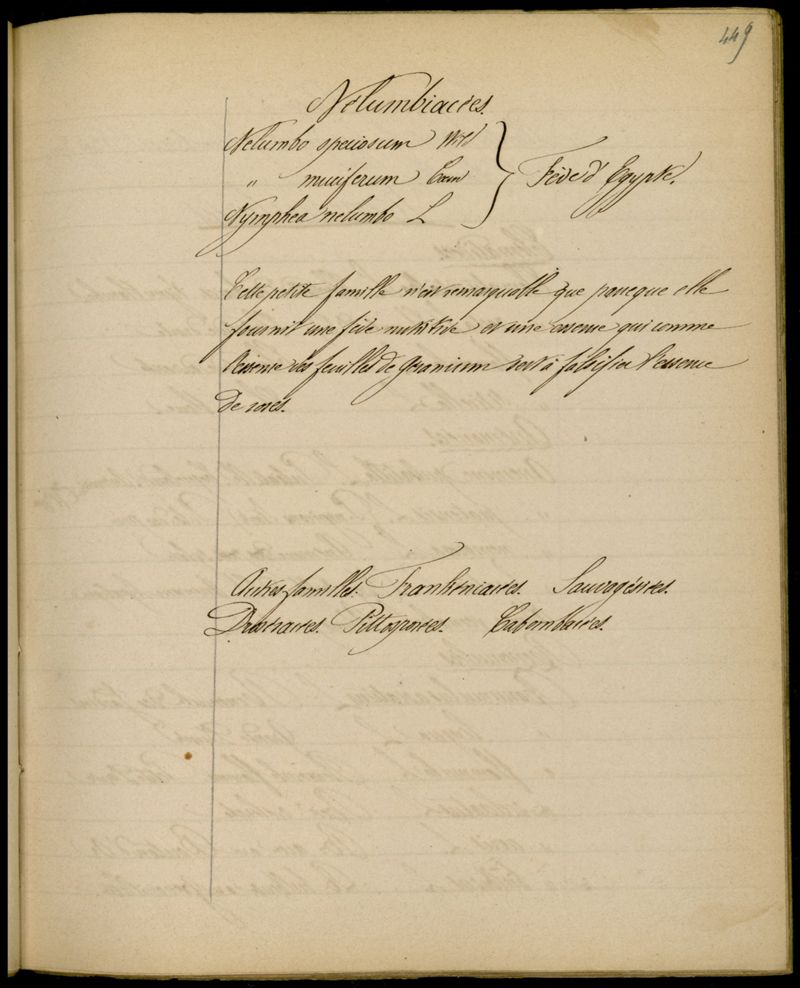 449
Nelumbiacées.
Nelumbo speciosum Wild
" nuciferum
Nymphea nelumbo L
} Fève d'Egypte.
Cette petite famille n'est remarquable que parceque elle
fournit une fève nutritive et une essence qui comme
l'essence des feuilles de geranium sert à falsifier l'essence
de roses.
Autres familles. Frankéniacées. Sauvagésiées.
Droséracées. Pittosporées. Cabombacées.